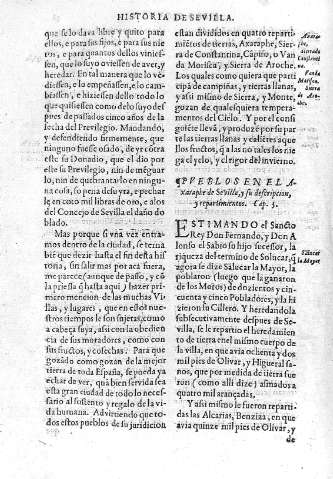 HISTORIA DE SEVILLA.
que se lo dava libre y quito para
ellos, e para sus fijos, e para sus nie
tos, e para quantos dellos vinies-
sen, que lo suyo oviessen de aver, y
heredar. En tal manera que lo vẽ-
diessen, e lo empeñassen, e lo cam-
biassen, e hiziessen dello todo lo
que quisiessen como de lo suyo des
pues de passados cinco años de la
fecha del Previlegio. Mandando,
y defendiendo firmemente, que
ninguno fuesse osado, de yr cõtra
este su Donadio, que el dio por
este su Previlegio, nin de mẽguar
lo, nin de quebrantarlo en ningu-
na cosa, so pena de su yra, e pechar
le en coto mil libras de oro, e alos
del Concejo de Sevilla el daño do
blado.
Mas porque si vna vez entra-
mos dentro de la ciudad, se terna
bien que dezir hasta el fin desta his
toria, sin salir mas por acà fuera,
me parece (aunque de passo, y cõ
la priessa q̃ hasta aqui) hazer pri-
mero mencion de las muchas Vi-
llas, y lugares, que en estos nues-
tros tiempos le son sujetas, como
a cabeça suya, assi con la obedien
cia de sus moradores, como con
sus fructos, y cosechas. Para que
gozãdo como gozan de la mejor
tierra de toda España, se pueda ya
echar de ver, quã bien servida sea
esta gran ciudad de todo lo neces-
sario al sustento y regalo de la vi-
da humana. Advirtiendo que to-
dos estos pueblos de su juridicion
estan divididos en quatro reparti-
mientos de tierras, Axarafe, Sier-
ra de Constantina, Cãpiso, o Van
da Morisca, y Sierra de Aroche.
Los quales como quiera que parti
cipã de campiñas, y tierras llanas,
y assi mismo de Sierra, y Monte,
gozan de qualesquiera tempera-
mentos del Cielo. Y por el consi
guiente lleva, y produze por su par
te las tierras llanas y calietes aque
llos fructos, q̃ a las no tales los nie
ga el yelo, y el rigor del invierno.
¶ PVEBLOS EN EL A-
xarafe de Sevilla, y su descripcion,
y repartimientos. Cap. 3.
ESTIMANDO el Sancto
Rey Don Fernando, y Don A
lonso el Sabio su hijo sucessor, la
riqueza del termino de Solucar, q̃
agora se dize Salucar la Mayor, la
poblaron (luego que la ganaron
de los Moros) de dozientos y cin-
cuenta y cinco Pobladores, y la hi
zieron su Cillero. Y heredandola
subsecutivamente despues de Se-
villa, se le repartio el heredamien
to de tierra en el mismo cuerpo de
la villa, en que avia ochenta y dos
mil pies de Olivar, y Higueral sa-
nos, que por medida de tierra fue
ron (como alli dize) asmados a
quatro mil arançadas.
Y assi mismo le fueron reparti-
das las Alcarias, Benziza, en que
avia quinze mil pies de Olivar, y
de